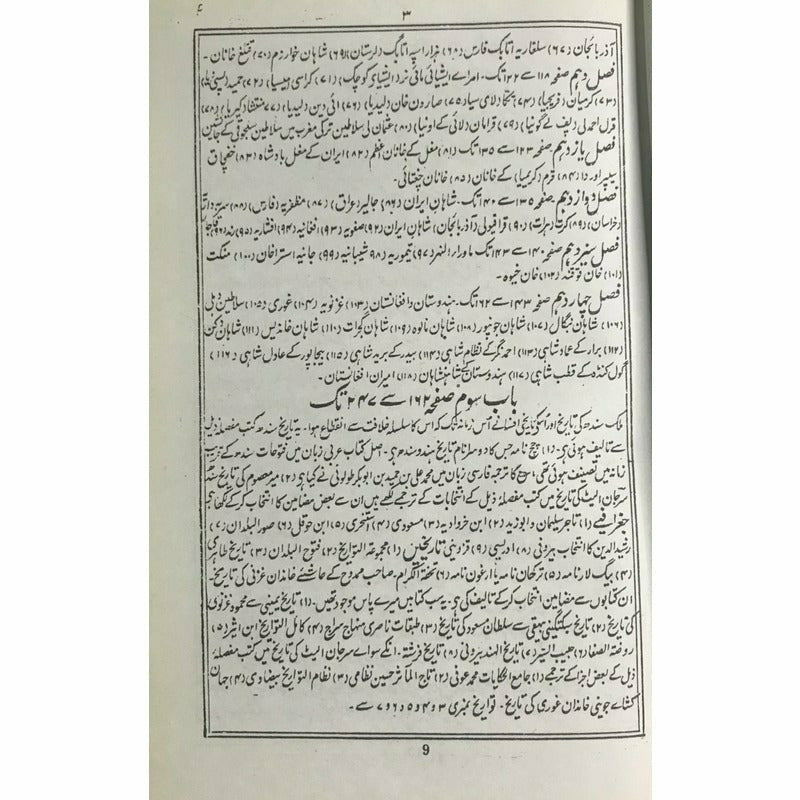 ۳
آذربائجان (۶۷) سلغاریہ اتابک فارس (۶۸) ہزار اسپیہ اتابگ لرستان (۶۹) شاہان خوارزم (۷۰) قتلغ خانان -
فصل دہم صفحہ ۱۱۸ سے ۱۲۲ تک - امراے ایشیائی مائی نرد ایشیاے کوچک (۷۱) کراسی میسیا (۷۲) حمید
(۷۳) کرمیان فریجیا (۷۴) لیڈیا (۷۵) صاروخان لیڈیا (۷۶) ائی دین لیڈیا (۷۷) منتشا کیریا (۷۸)
قزل احمد لی (۷۹) قرامان (۸۰) عثمان لی سلاطین ترکی مغرب میں سلاطین سلجوقی کے جانشین
فصل یازدہم صفحہ ۱۲۳ سے ۱۳۵ تک (۸۱) مغل کے خانان اعظم (۸۲) ایران کے مغل بادشاہ (۸۳) خفچاق
(۸۴) قرم (کریمیا) کے خانان (۸۵) خانان چغتائی -
فصل دوازدہم صفحہ ۱۳۵ سے ۱۴۰ تک - شاہان ایران (۸۶) جالیر (عراق) (۸۷) مظفریہ (فارس) (۸۸) سربدارا
(خراسان) (۸۹) کرت (ہرات) (۹۰) قراقیولی آذربائجان) شاہان ایران (۹۲) صفویہ (۹۳) افغانیہ (۹۴) افشاریہ (۹۵) زند (۹۶) قاجار
فصل سیزدہم صفحہ ۱۴۰ سے ۱۴۳ تک ماورار النہر (۹۷) تیموریہ (۹۸) شیبانیہ (۹۹) جانیہ استراخان (۱۰۰) منکت
(۱۰۱) خان قوقند (۱۰۲) خان خیوہ -
فصل چہاردہم صفحہ ۱۴۳ سے ۱۶۲ تک - ہندوستان و افغانستان (۱۰۳) غزنویہ (۱۰۴) غوری (۱۰۵) سلاطین دہلی
(۱۰۶) شاہان بنگال (۱۰۷) شاہان جونپور (۱۰۸) شاہان مالوہ (۱۰۹) شاہان گجرات (۱۱۰) شاہان خاندیس (۱۱۱) شاہان دکن
(۱۱۲) برار کے عماد شاہی (۱۱۳) احمد نگر کے نظام شاہی (۱۱۴) بیدر کے برید شاہی (۱۱۵) بیجاپور کے عادل شاہی (۱۱۶)
گول کنڈہ کے قطب شاہی (۱۱۷) ہندوستان کے شاہنشاہان (۱۱۸) امیران افغانستان -
باب سوم صفحہ ۱۶۲ سے ۲۴۷ تک
ملک سندھ کی تاریخ اور اسکو تاریخی افسانے اُس زمانہ تک کہ اس کا سلسلہ خلافت سے انقطاع ہوا - یہ تاریخ سندھ کتب مفصلہ ذیل
سے تالیف ہوئی ہی - (۱) چچ نامہ جس کا دوسرا نام تاریخ ہند و سندھ ہی - اصل کتاب عربی زبان میں فتوحات سندھ کے قریب
زمانہ میں تصنیف ہوئی تھی، اسکا ترجمہ فارسی زبان میں محمد علی بن حمید بن ابوبکر طولونی نے کیا ہی (۲) میر معصوم کی تاریخ سندھ
سرجان الیٹ کی تاریخ میں کتب مفصلۂ ذیل کے انتخابات کے ترجمے لکھے ہیں ان سے بعض مضامین کا انتخاب کر کے لکھا ہی
جغرافیے (۱) تاجر سلیمان و ابوزید (۲) ابن خردادبہ (۳) مسعودی (۴) استخری (۵) ابن حوقل (۶) صور البلدان (۷)
رشید الدین کا انتخاب بیرونی (۸) ادریسی (۹) قزوینی تاریخیں (۱) مجموعۃ التواریخ (۲) فتوح البلدان (۳) تاریخ طاہری
(۴) بیگ لار نامہ (۵) ترکھان نامہ یا ارغون نامہ (۶) تحفۃ الکرام - صاحب ممدوح کے حاشئے خاندان غزنی کی تاریخ -
ان کتابوں سے مضامین انتخاب کر کے تالیف کی ہی - یہ سب کتابیں میرے پاس موجود تھیں - (۱) تاریخ یمینی سے محمود غزنوی
کی تاریخ (۲) تاریخ سبکتگینی بیہقی سے سلطان مسعود کی تاریخ (۳) طبقات ناصری منہاج سراج (۴) کامل التواریخ ابن اثیر (۵)
روضۃ الصفا (۶) حبیب السیر (۷) تاریخ الہند بیرونی (۸) تاریخ فرشتہ - انکے سواے سرجان الیٹ کی تاریخ میں کتب مفصلۂ
ذیل کے بعض اجزا کے ترجمے (۱) جامع الحکایات محمد عوفی (۲) تاج المآثر حسین نظامی (۳) نظام التواریخ بیضاوی (۴) جہان
کشاے جوینی خاندان غوری کی تاریخ - تواریخ نمبری ۳ و ۴ و ۵ و ۶ و ۷ سے -
9